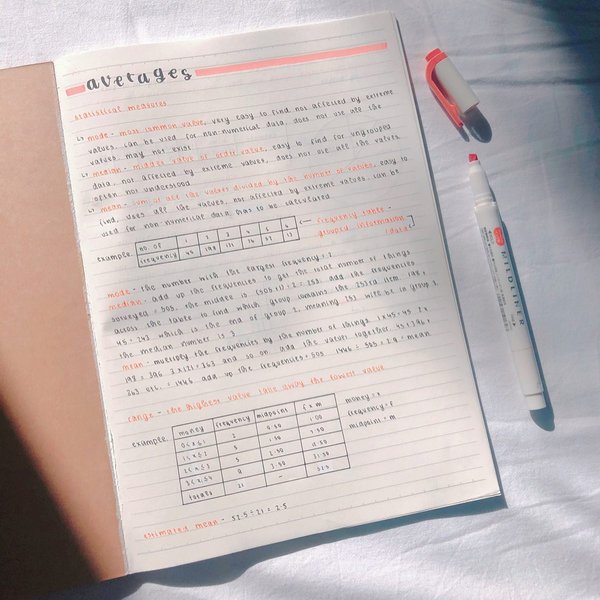 averages
statistical measures
↳ mode - most common value, very easy to find not affected by extreme
values, can be used for non-numerical data, does not use all the
values, may not exist
↳ median - middle value of order value, easy to find for ungrouped
data, not affected by extreme values, does not use all the values
often not understood
↳ mean - sum of all the values divided by the number of values, easy to
find, uses all the values, not affected by extreme values can be
used for non numerical data has to be calculated
example: no. of 1 2 3 4 5 6 ← frequency table -
frequency 45 198 121 76 52 13 grouped information
(data)
mode - the number with the largest frequency = 2
median - add up the frequencies to get the total number of things
surveyed = 505, the middle is (505+1) ÷ 2 = 253. add the frequencies
across the table to find which group contains the 253rd item.
45 = 243 which is the end of group 2, meaning 253 will be in group 3,
the median number is 3
mean - multiply the frequencies by the number of things 1x45 = 45 2x
198 = 396 3x121 = 363 and so on. add the values together 45+396+
363 etc. = 1446. add up the frequencies = 505. 1446 ÷ 505 = 2.9 = mean
range - the highest value take away the lowest value
example: money frequency midpoint fxm money = x
0≤x≤1 2 0.50 1.00 frequency = f
1<x≤2 5 1.50 7.50 midpoint = m
2<x≤3 5 2.50 12.50
3<x≤4 9 3.50 31.50
totals 21 - 52.5
estimated mean - 52.5 ÷ 21 = 2.5
MILDLINER